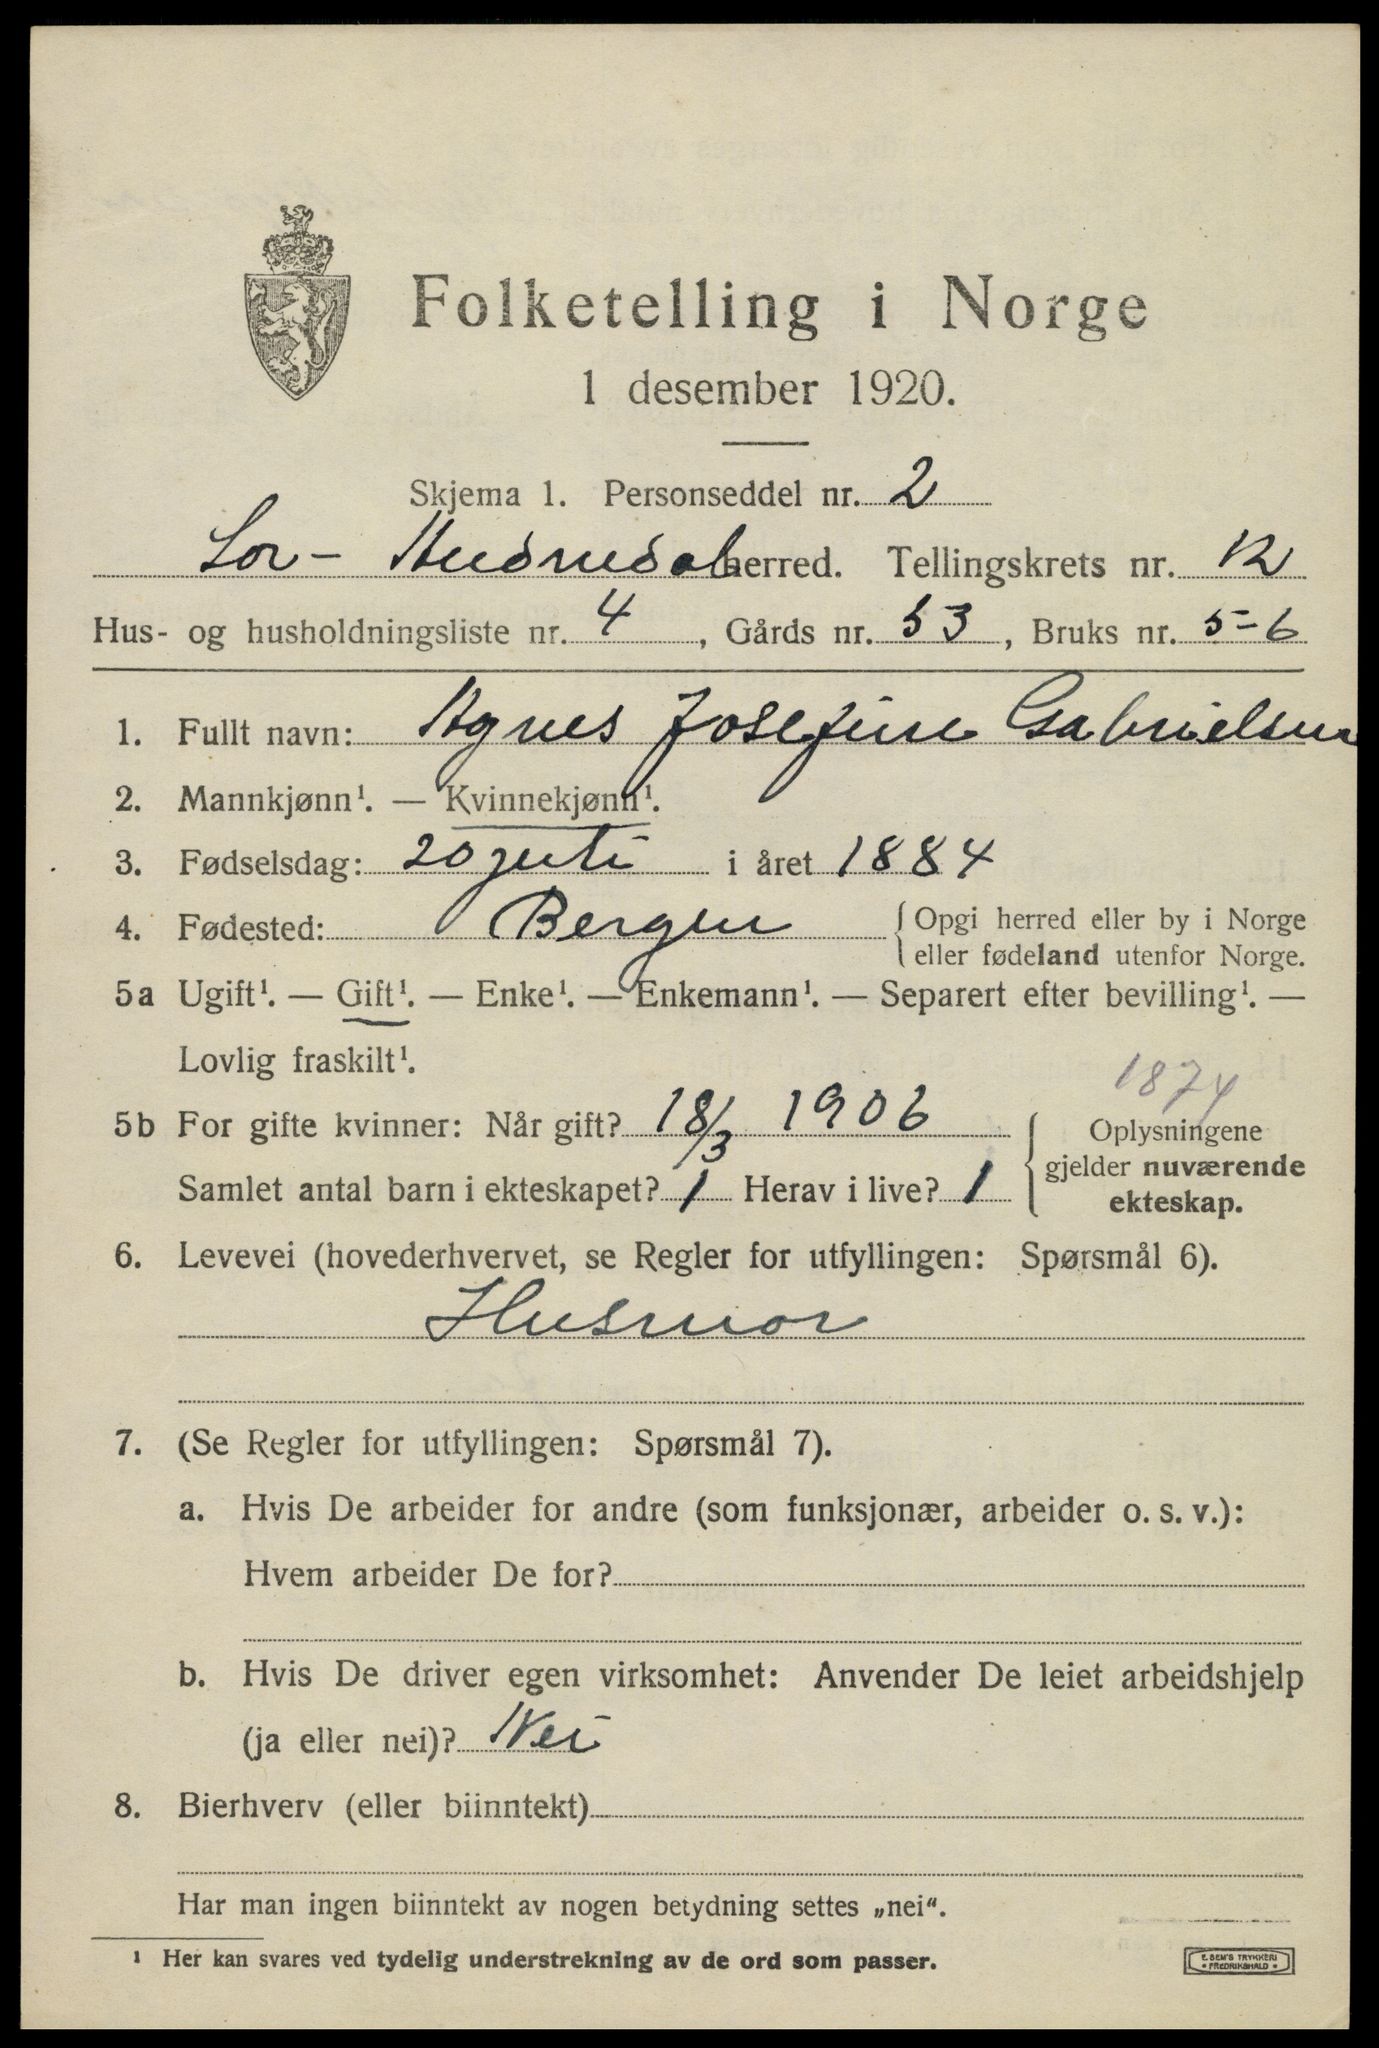 Folketelling i Norge
1 desember 1920.
Skjema 1. Personseddel nr. 2
Sør- Audnedal herred. Tellingskrets nr. 12
Hus- og husholdningsliste nr. 4, Gårds nr. 53, Bruks nr. 5-6
1. Fullt navn: Agnes Josefine Gabrielsen
2. Mannkjønn¹. — Kvinnekjønn¹.
3. Fødselsdag: 20 juli i året 1884
4. Fødested: Bergen { Opgi herred eller by i Norge
eller fødeland utenfor Norge.
5a Ugift¹. — Gift¹. — Enke¹. — Enkemann¹. — Separert efter bevilling¹. —
Lovlig fraskilt¹.
1874
5b For gifte kvinner: Når gift? 18/3 1906 { Oplysningene
gjelder nuværende
Samlet antal barn i ekteskapet? 1 Herav i live? 1
ekteskap.
6. Levevei (hovederhvervet, se Regler for utfyllingen: Spørsmål 6).
Husmor
7. (Se Regler for utfyllingen: Spørsmål 7).
a. Hvis De arbeider for andre (som funksjonær, arbeider o. s. v.):
Hvem arbeider De for?
b. Hvis De driver egen virksomhet: Anvender De leiet arbeidshjelp
(ja eller nei)? Nei
8. Bierhverv (eller biinntekt)
Har man ingen biinntekt av nogen betydning settes „nei“.
¹ Her kan svares ved tydelig understrekning av de ord som passer.
E. SEM'S TRYKKERI
• FREDRIKSHALD •